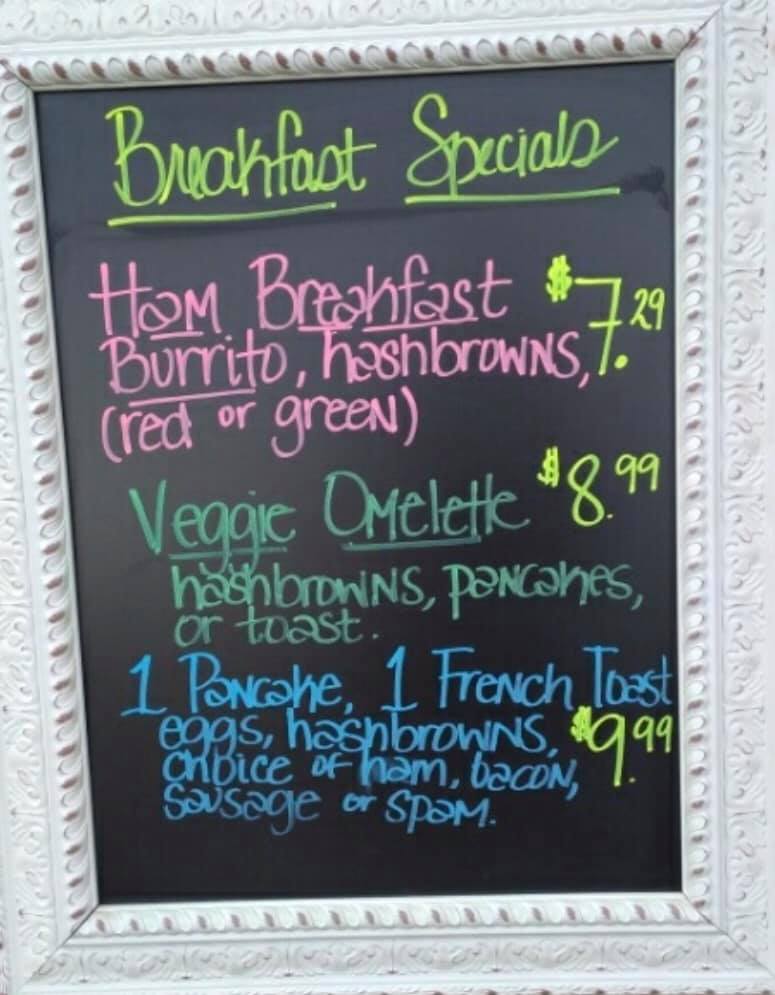 Breakfast Specials
Ham Breakfast $7.29
Burrito, hashbrowns,
(red or green)
Veggie Omelette $8.99
hashbrowns, pancakes,
or toast.
1 Pancake, 1 French Toast
eggs, hashbrowns, $9.99
choice of ham, bacon,
sausage or spam.